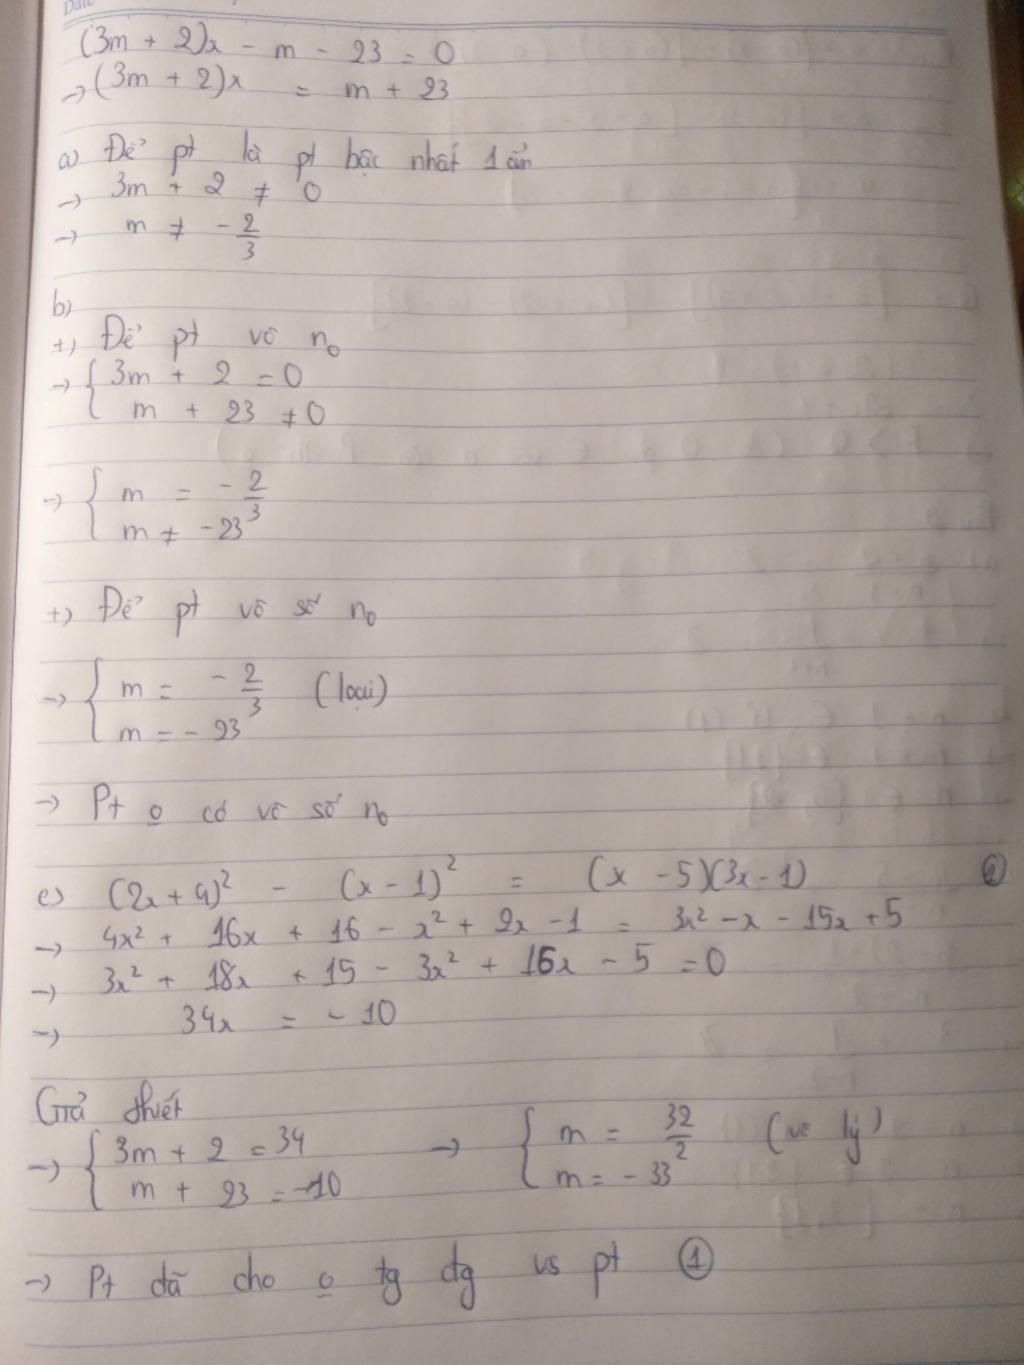 Date
(3m + 2)x - m - 23 = 0
→ (3m + 2)x = m + 23
a) Để pt là pt bậc nhất 1 ẩn
→ 3m + 2 ≠ 0
→ m ≠ - 2/3
b)
+) Để pt vô n₀
→ { 3m + 2 = 0
m + 23 ≠ 0
→ { m = - 2/3
m ≠ - 23
+) Để pt vô số n₀
→ { m = - 2/3 (loại)
m = - 23
→ Pt o̲ có vô số n₀
c) (2x + 4)² - (x - 1)² = (x - 5)(3x - 1) ②
→ 4x² + 16x + 16 - x² + 2x - 1 = 3x² - x - 15x + 5
→ 3x² + 18x + 15 - 3x² + 16x - 5 = 0
→ 34x = - 10
Giả thiết
→ { 3m + 2 = 34 → { m = 32/2 (vô lý)
m + 23 = -10 m = - 33
→ Pt đã cho o̲ tg đg vs pt ①